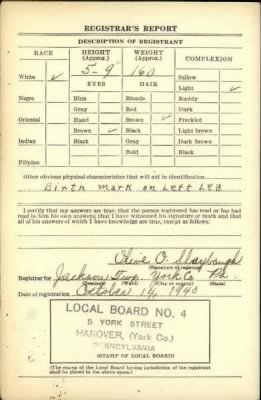 REGISTRAR'S REPORT
DESCRIPTION OF REGISTRANT
RACE HEIGHT (Approx.) WEIGHT (Approx.) COMPLEXION
5-9 160
White ✓ Sallow
EYES HAIR Light ✓
Negro Blue Blonde Ruddy
Gray Red Dark
Oriental Hazel Brown ✓ Freckled
Brown ✓ Black Light brown
Indian Black Gray Dark brown
Bald Black
Filipino
Other obvious physical characteristics that will aid in identification
Birth Mark on Left Leg
I certify that my answers are true; that the person registered has read or has had
read to him his own answers; that I have witnessed his signature or mark and that
all of his answers of which I have knowledge are true, except as follows:
Olive O. Slaybaugh
(Signature of registrar)
Registrar for Jackson Twp. York Co Pa.
(Precinct) (Ward) (City or county) (State)
Date of registration October 16, 1940
LOCAL BOARD NO. 4
5 YORK STREET
HANOVER, (York Co.)
PENNSYLVANIA
(STAMP OF LOCAL BOARD)
(The stamp of the Local Board having jurisdiction of the registrant
shall be placed in the above space.)